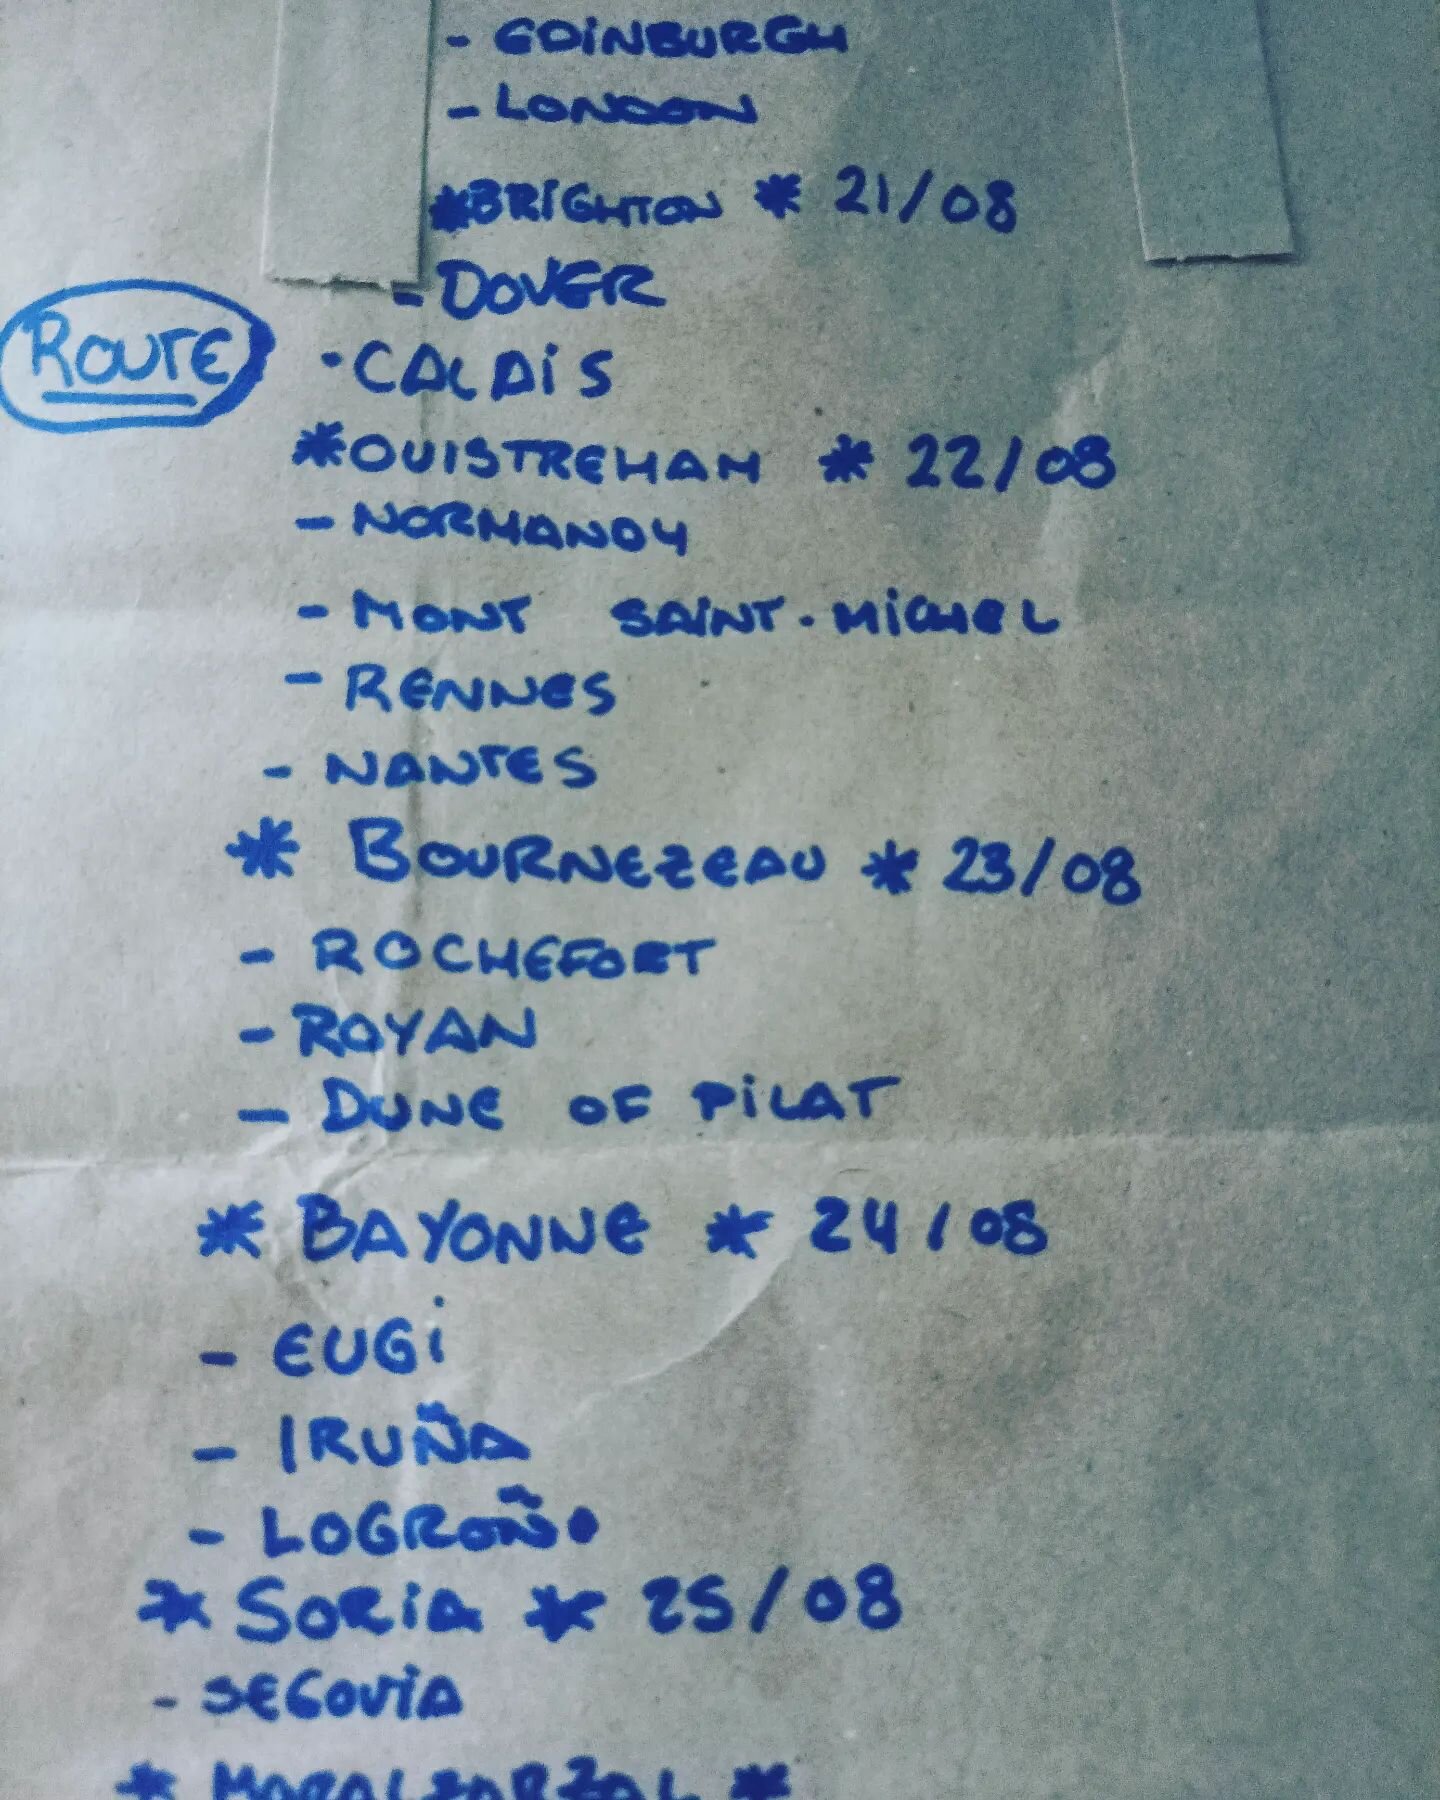 - EDINBURGH
- LONDON
*BRIGHTON * 21/08
- DOVER
ROUTE
·CALAIS
*OUISTREHAM * 22/08
- NORMANDY
- MONT SAINT-MICHEL
- RENNES
- NANTES
* BOURNEZEAU * 23/08
- ROCHEFORT
- ROYAN
- DUNE OF PILAT
* BAYONNE * 24/08
- EUGI
- IRUÑA
- LOGROÑO
* SORIA * 25/08
- SEGOVIA
* MORALZARZAL *